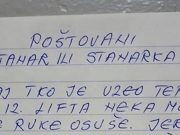 POŠTOVANI
STANAR ILI STANARKA
TKO JE UZEO
12. LIFTA NEKA MU
RUKE OSUŠE. JER